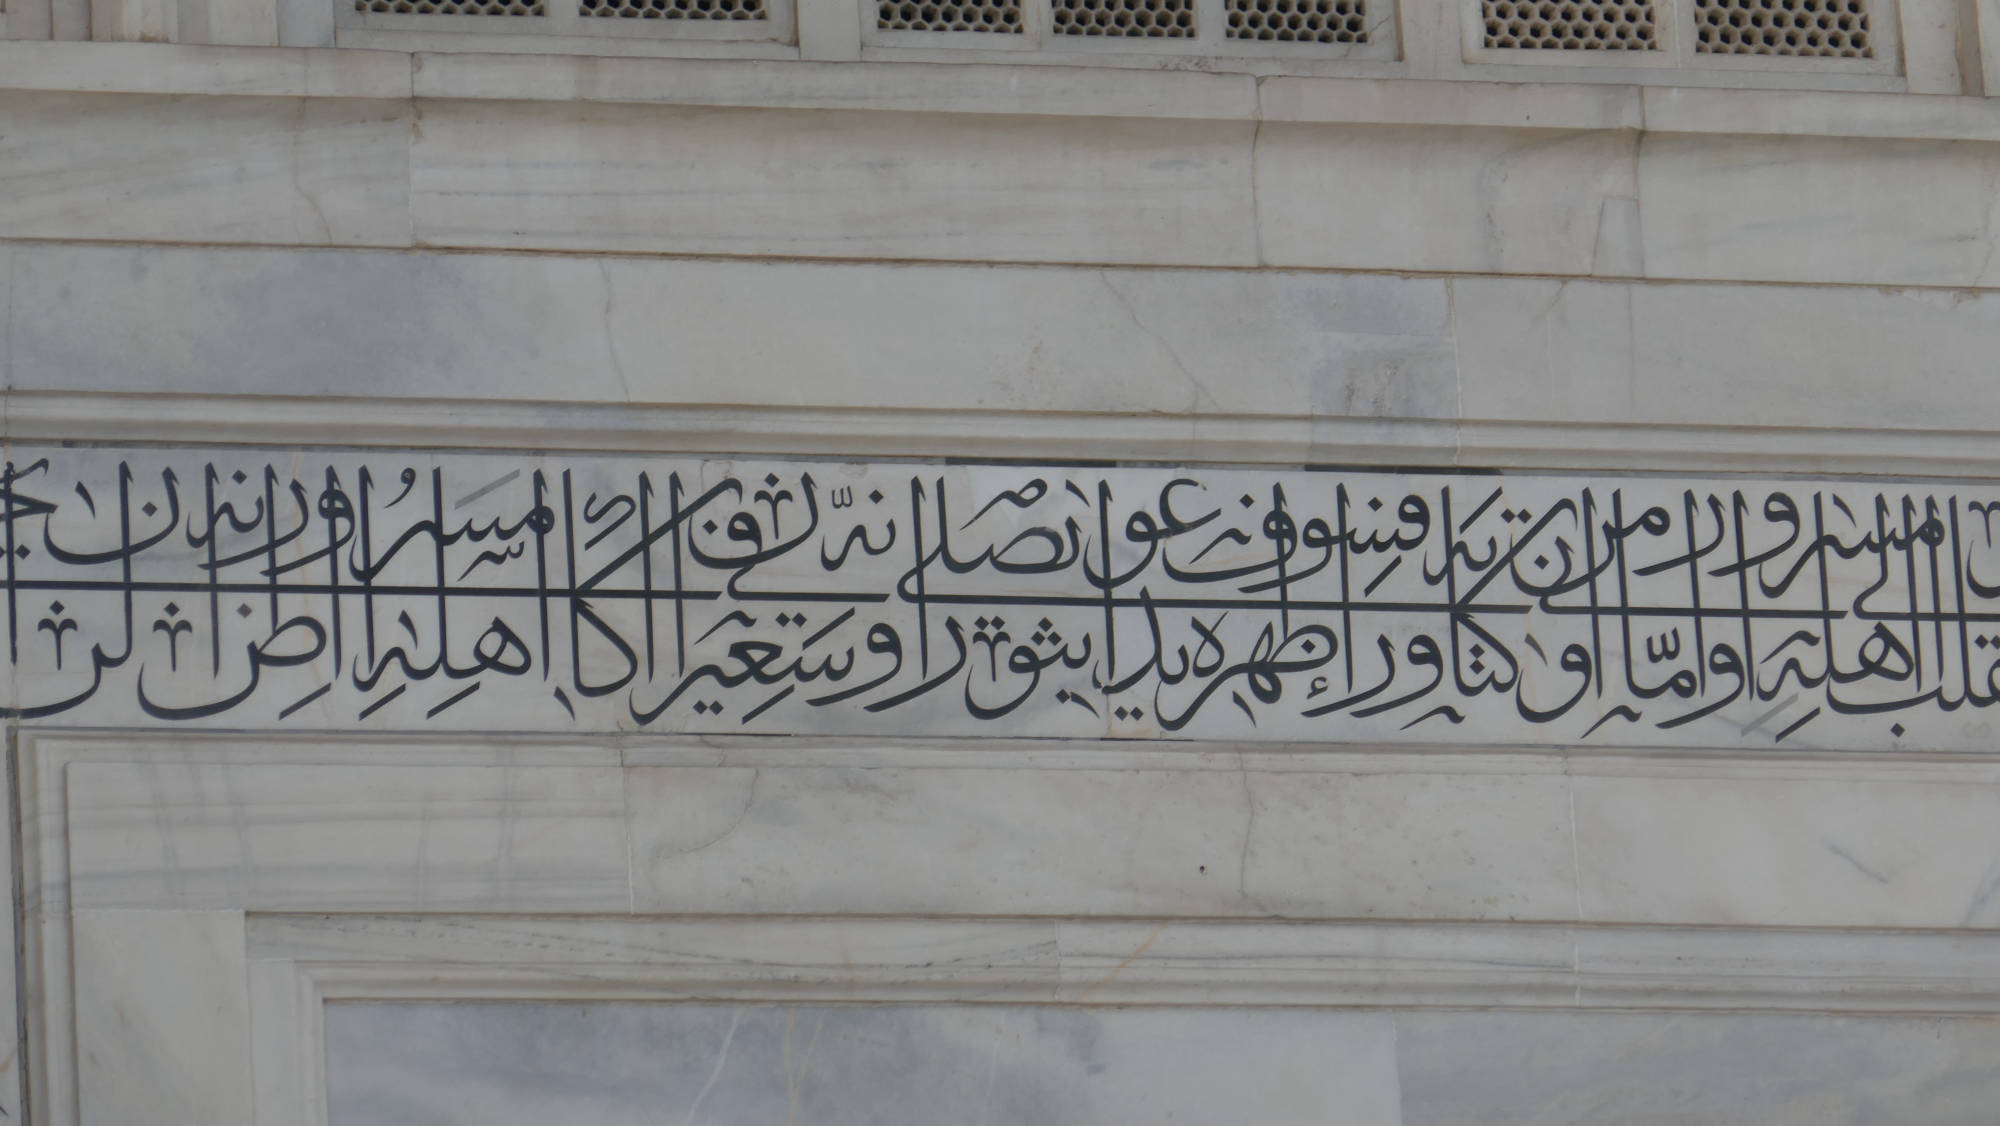 ينقلب الى اهله مسرورا واما من اوتى كتابه وراء ظهره فسوف يدعوا ثبورا ويصلى سعيرا انه كان فى اهله مسرورا انه ظن ان لن